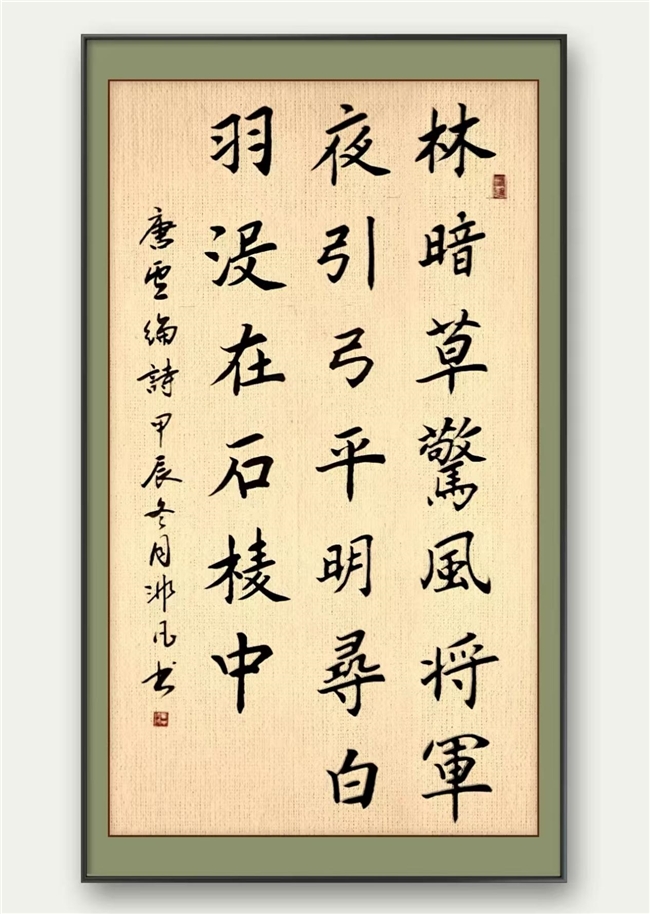 林暗草驚風将軍
夜引弓平明尋白
羽没在石棱中
唐盧綸詩甲辰冬月凡书